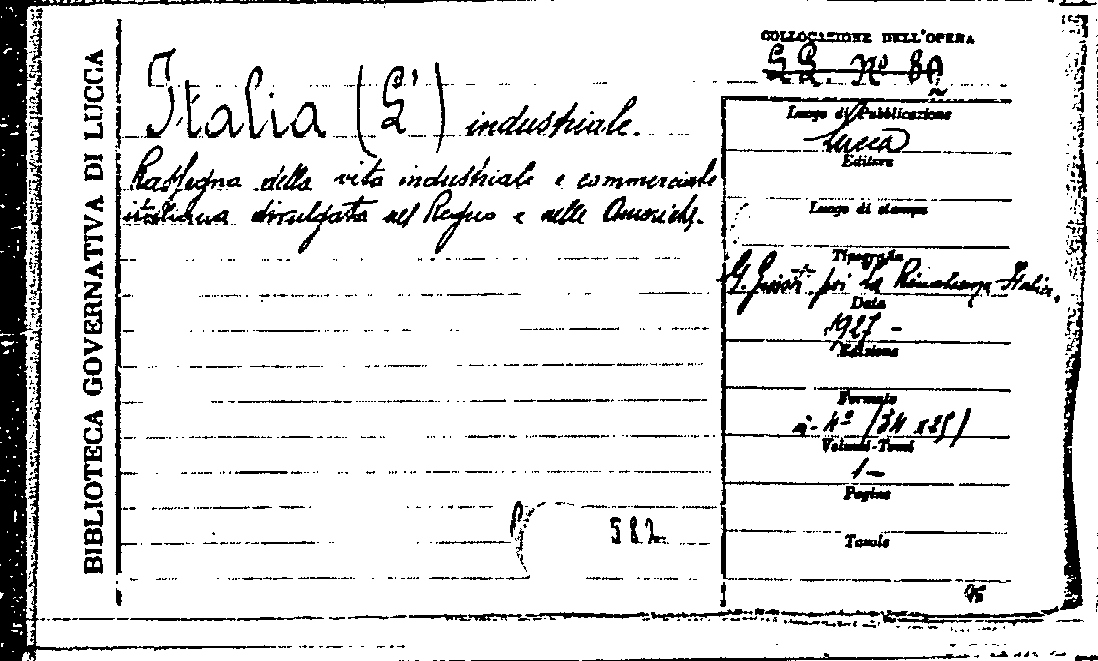 BIBLIOTECA GOVERNATIVA DI LUCCA
Italia (L') industriale.
Rassegna della vita industriale e commerciale
italiana divulgata nel Regno e nelle Americhe.
582
COLLOCAZIONE DELL'OPERA
Nº 80
Luogo di Pubblicazione
Lucca
Editore
Luogo di stampa
Tipografia
G. Giusti poi La Rinascenza Italic.
Data
1927 -
Edizione
Formato
in-4º (34 x 25)
Volumi-Tomi
1-
Pagine
Tavole